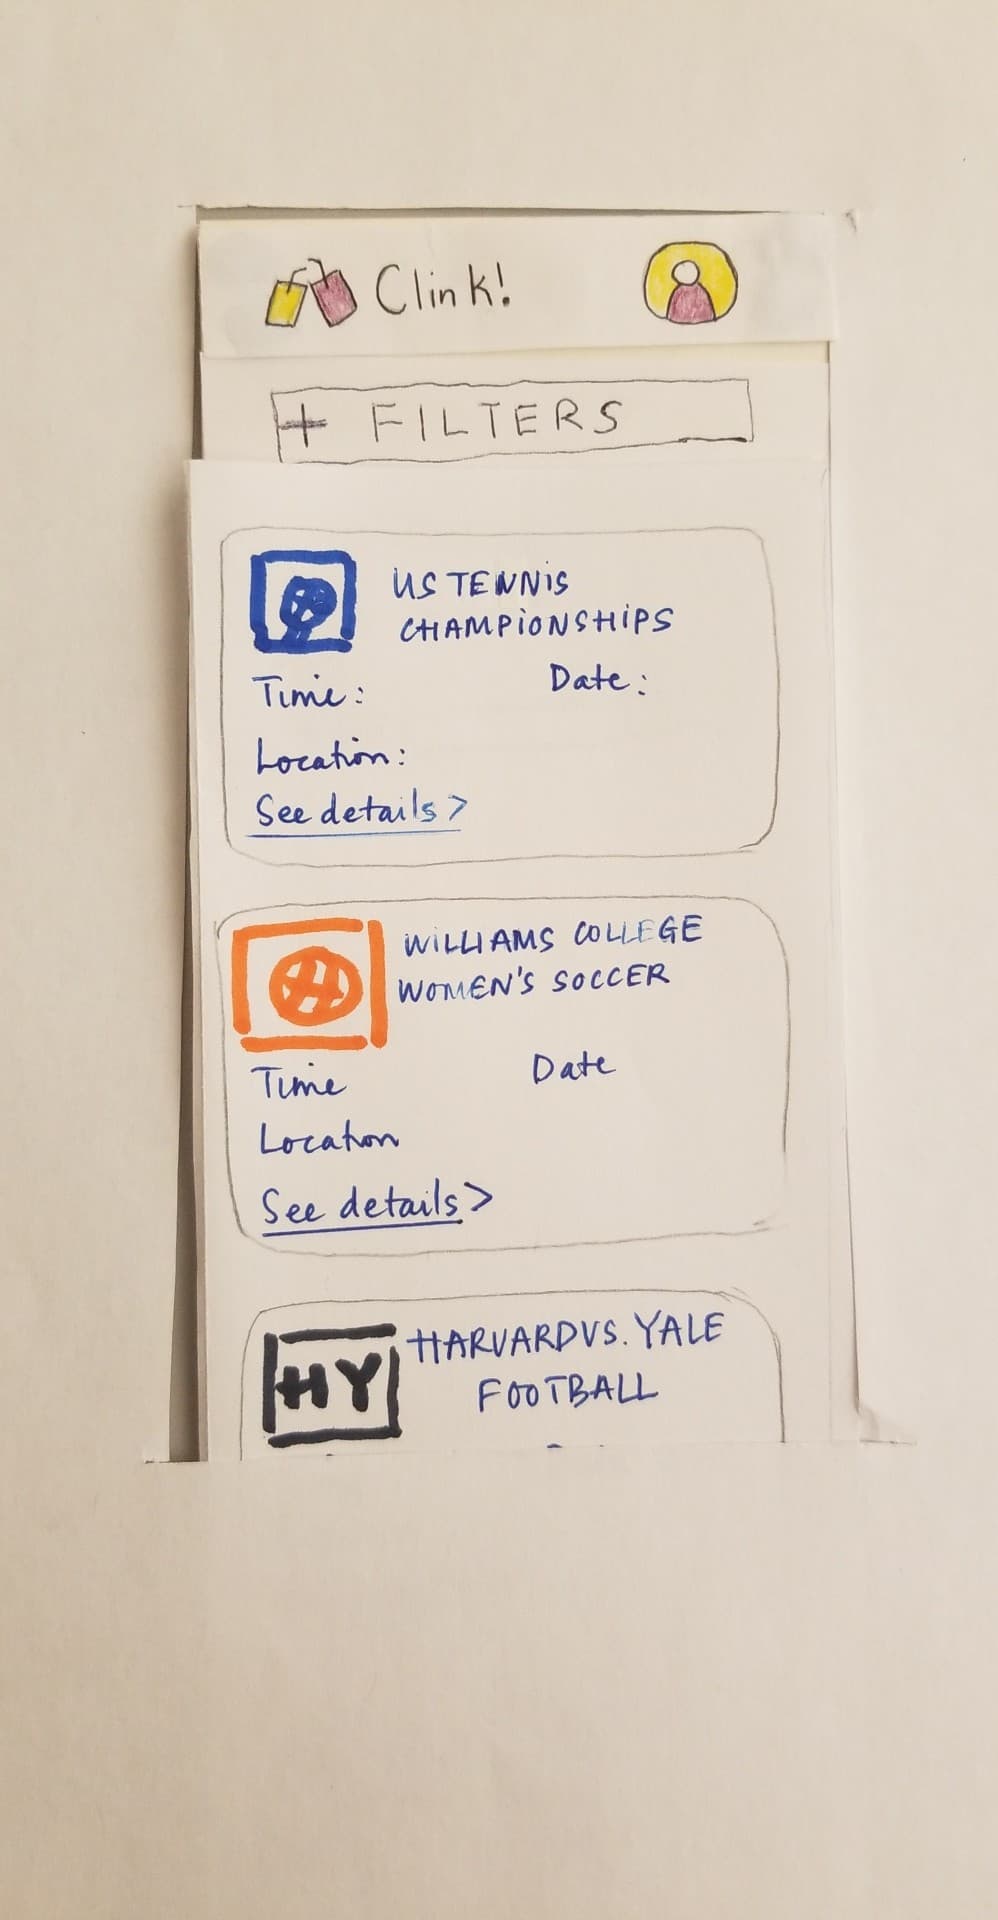 Clink!
+ FILTERS
US TENNIS
CHAMPIONSHIPS
Time: Date:
Location:
See details >
WILLIAMS COLLEGE
WOMEN'S SOCCER
Time Date
Location
See details >
HY HARVARD VS. YALE
FOOTBALL